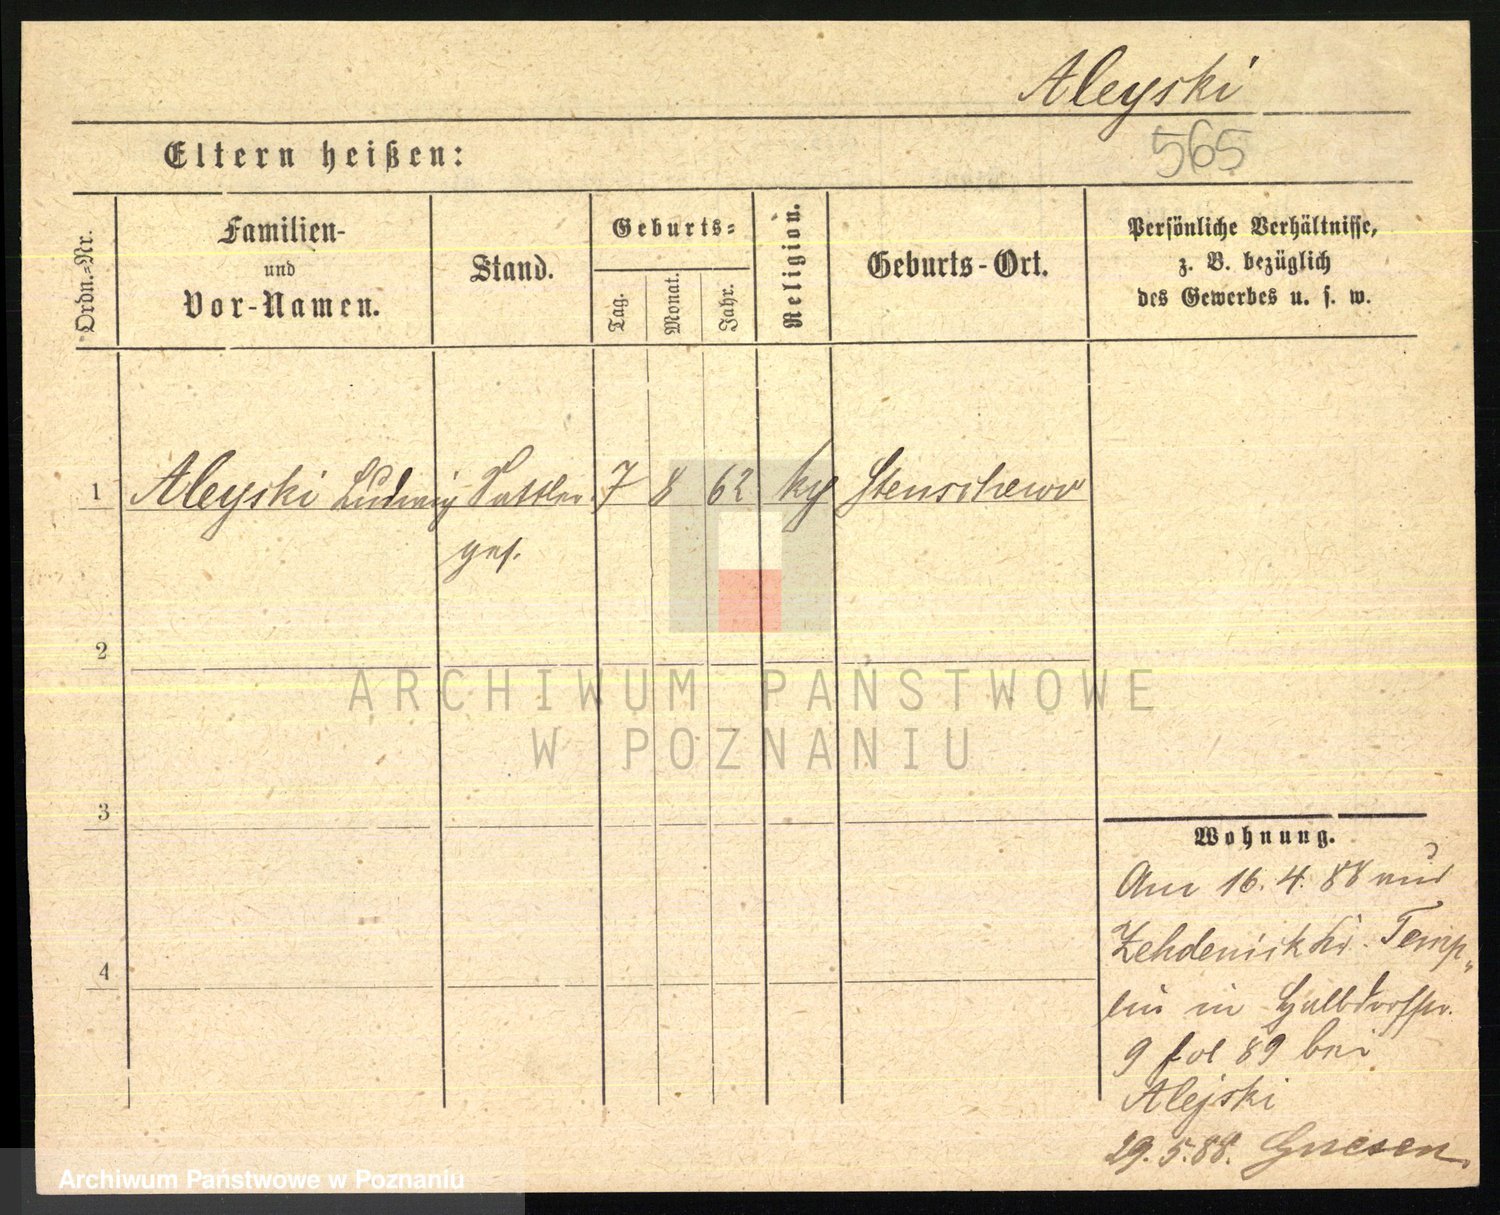 Aleyski
565
Eltern heißen:
Ordn.-Nr.
Familien-
und
Vor-Namen.
Stand.
Geburts-
Tag.
Monat.
Jahr.
Religion.
Geburts-Ort.
Persönliche Verhältnisse,
z. B. bezüglich
des Gewerbes u. s. w.
1 Aleyski Ludwig Sattler 7 8 62 Stenschewo
ges.
2
3
4
ARCHIWUM PAŃSTWOWE
W POZNANIU
Wohnung.
Am 16. 4. 88 aus
Zehdenick Kr. Temp„
lin in Halbdorfstr.
9 fol 89 bei
Alejski
29. 5. 88. Gnesen.
Archiwum Państwowe w Poznaniu